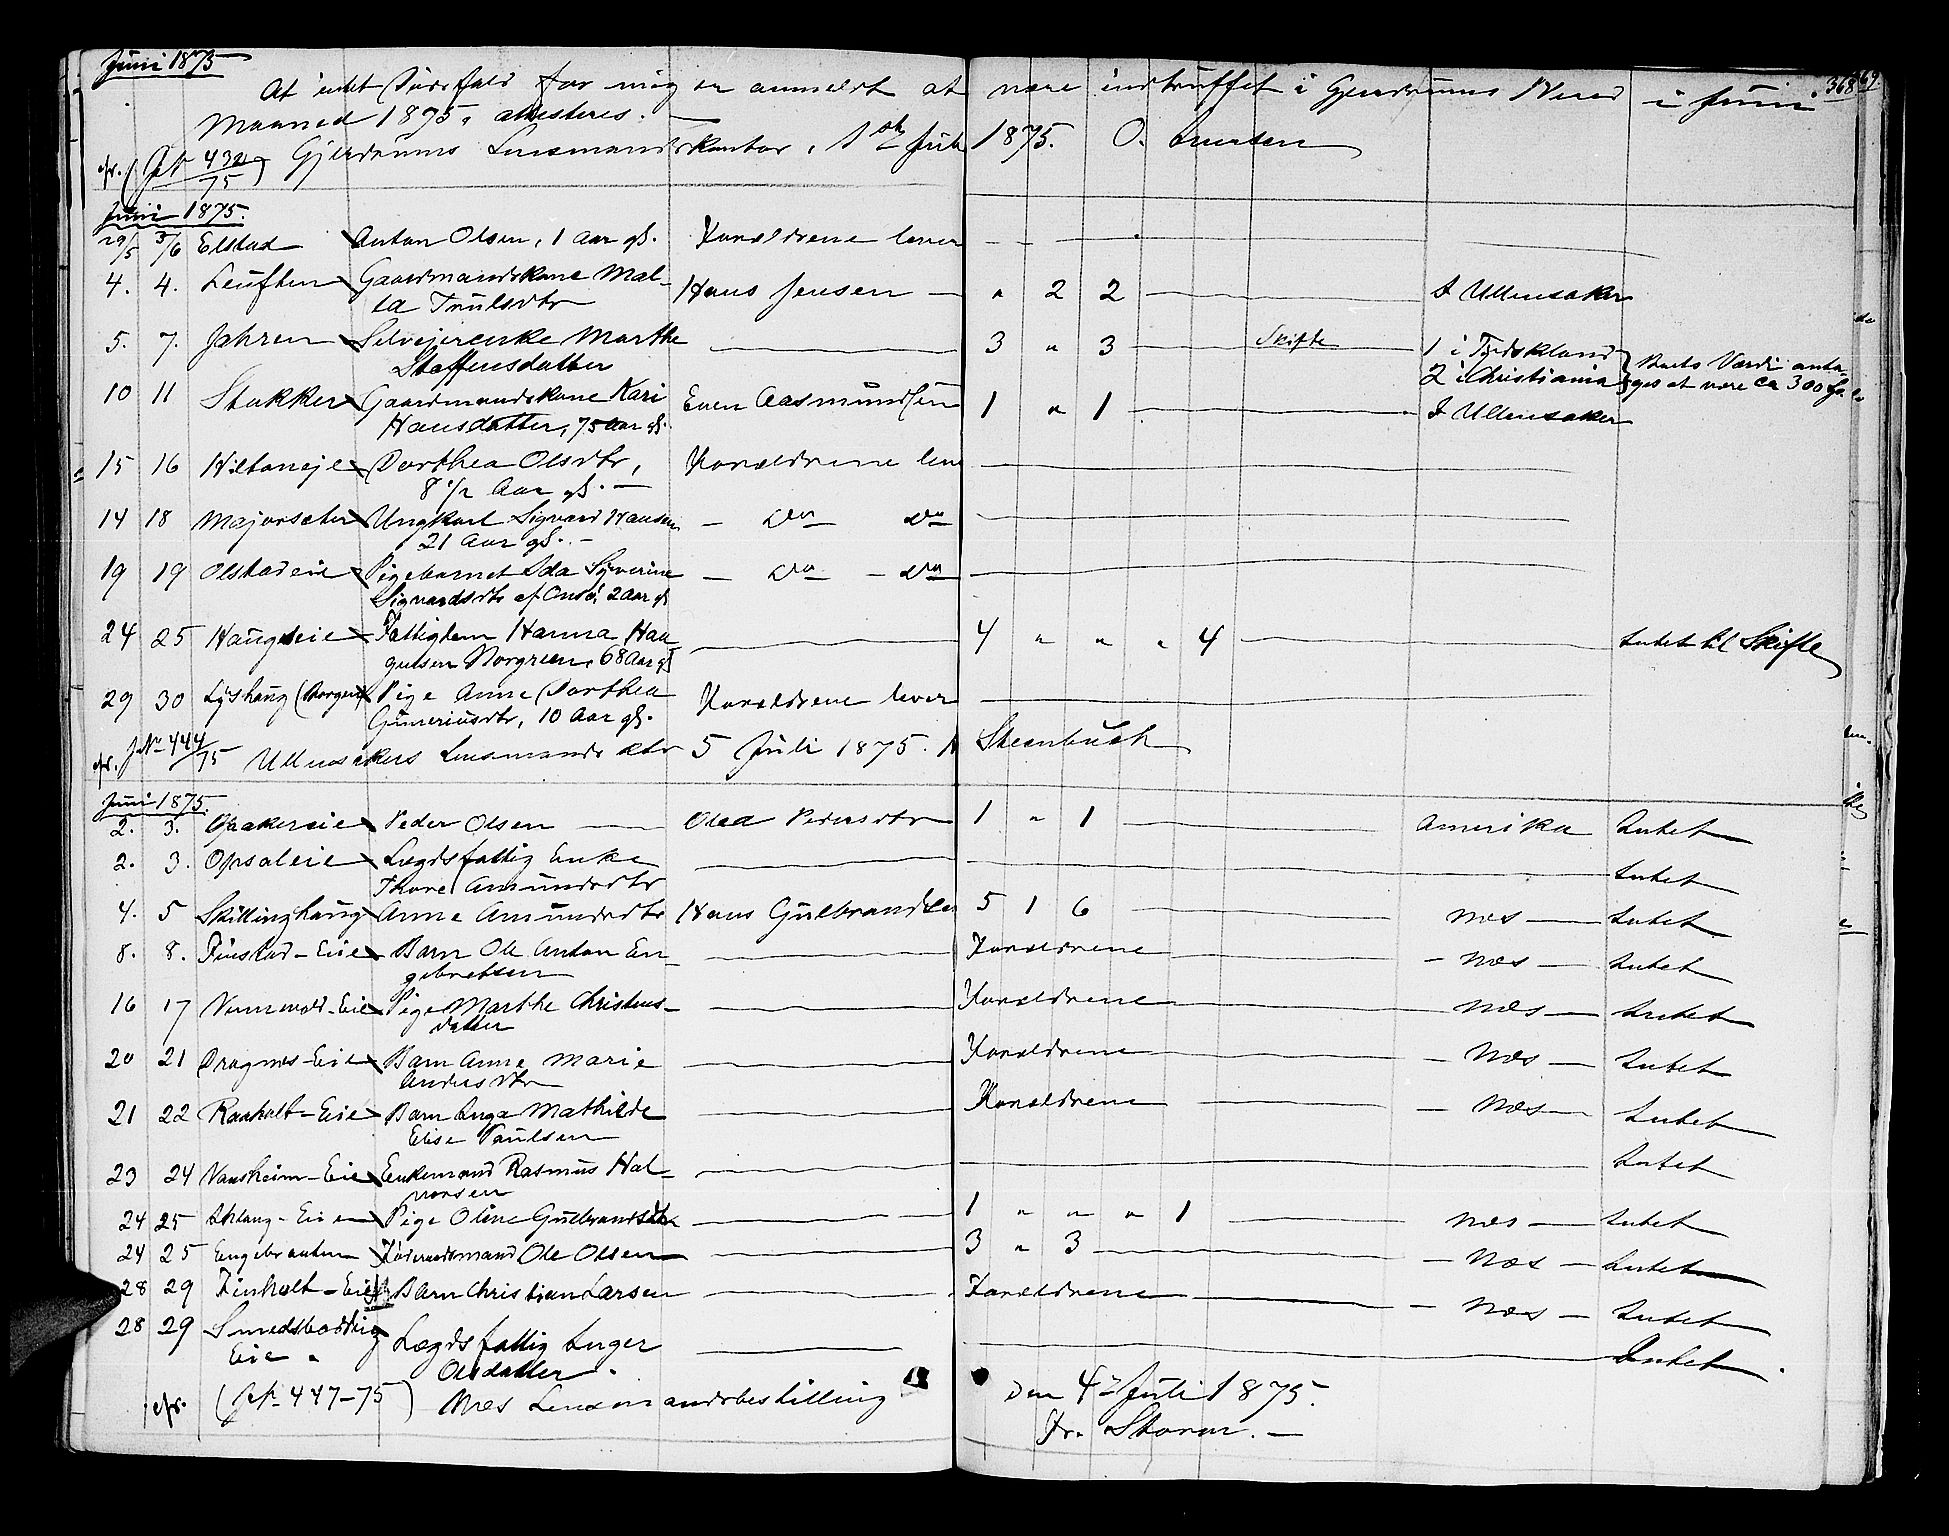 368
Juni 1875
At intet Dødsfald for mig er anmeldt at være indtruffet i Gjerdrums Hered i Juni
Maaned 1875, attesteres. —
cfr. (JN 432/75) Gjerdrums Lensmandskontor, 1ste Juli 1875. O.
Juni 1875.
29/5 3/6 Elstad Anton Olsen, 1 Aar gl. Forældrene lever
4. 4. Leuften Gaardmandskone Mal- Hans Jensen — " 2 2 I Ullensaker
la Trulsdtr
5. 7. Jahren Selvejerenke Marthe — 3 " 3 Skifte 1 i Tydskland Boets Værdi anta-
Staffensdatter 2 i Christiania ges at være ca 300
10 11 Stakker Gaardmandskone Kari Even Aasmundsen 1 " 1 I Ullensaker
Hansdatter, 75 Aar gl.
15 16 Hiltoneje Dorthea Olsdtr, Forældrene leve
8 1/2 Aar gl. —
14 18 Majorseter Ungkarl Sigvard Hansen — Do Do
21 Aar gl. —
19 19 Olstadeie Pigebarnet Ida Syverine — Do — Do
Sigvardsdtr af 2 Aar gl
24 25 Haugseie Fattiglem Hanna Haa- — 4 " " " 4 Intet til Skifte
gensen Norgreen, 68 Aar gl
29 30 Lyshaug (Borgen) Pige Anne Dorthea Forældrene lever
Guneriusdtr, 10 Aar gl.
cfr. JN 444/75 Ullensakers Lensmandsktr 5 Juli 1875. A Steenbuch
Juni 1875.
2. 3. Opakereie Peder Olsen — Olea Pedersdtr 1 " 1 Amerika Intet
2. 3. Opsaleie Lægdsfattig Enke — Intet
Thore Amundsdtr
4. 5 Skillinghaug Anne Amundsdtr Hans Gulbrandsen 5 1 6 Næs — Intet
8. 8. Finstad-Eie Barn Ole Anton En- — Forældrene — Næs — Intet
gebretsen
16 17 Vennevold-Eie Pige Marthe Christens- — Forældrene Næs — Intet
datter
20 21 Dragnes-Eie Barn Anne Marie — Forældrene — Næs — Intet
Andersdtr
21 22 Ranholt-Eie Barn Inga Mathilde — Forældrene — Næs — Intet
Elise Paulsen
23 24 Vansheim-Eie Enkemand Rasmus Hal- — Intet
vorsen
24 25 Pige Oline Gulbrandsdtr — 1 " " " 1 Næs — Intet
24 25 Engebraaten Føderaadsmand Ole Olsen — 3 " 3 — Næs — Intet
28 29 Finholt-Eie Barn Christian Larsen — Forældrene — Næs — Intet
28 29 Lægdsfattig Inger — Intet
Eie Olsdatter.
cfr. (JN 447-75) Næs Lensmandsbestilling den 4de Juli 1875.
Fr. Storm. —